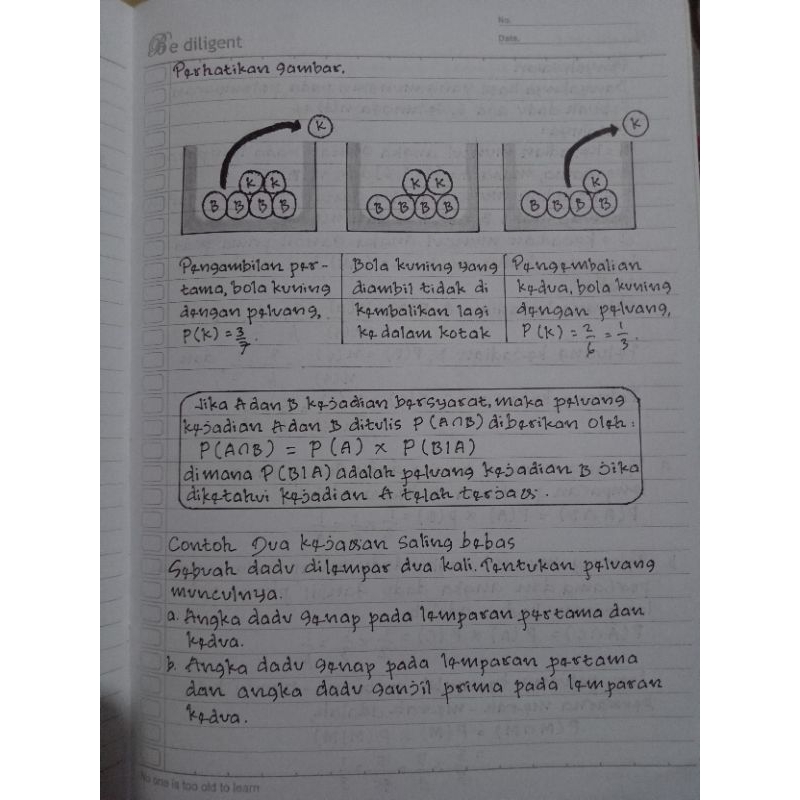 Be diligent
No.
Date.
Perhatikan gambar.
K
K
K K
K K
K
B B B B
B B B B
B B B B
Pengambilan per-
tama, bola kuning
dengan peluang,
P(K) = 3/7.
Bola kuning yang
diambil tidak di
kembalikan lagi
ke dalam kotak
Pengembalian
kedua, bola kuning
dengan peluang,
P(K) = 2/6 = 1/3.
Jika A dan B kejadian bersyarat, maka peluang
kejadian A dan B ditulis P(A∩B) diberikan oleh:
P(A∩B) = P(A) × P(B|A)
dimana P(B|A) adalah peluang kejadian B jika
diketahui kejadian A telah terjadi.
Contoh Dua kejadian saling bebas
Sebuah dadu dilempar dua kali. Tentukan peluang
munculnya.
a. Angka dadu genap pada lemparan pertama dan
kedua.
b. Angka dadu genap pada lemparan pertama
dan angka dadu ganjil prima pada lemparan
kedua.
No one is too old to learn